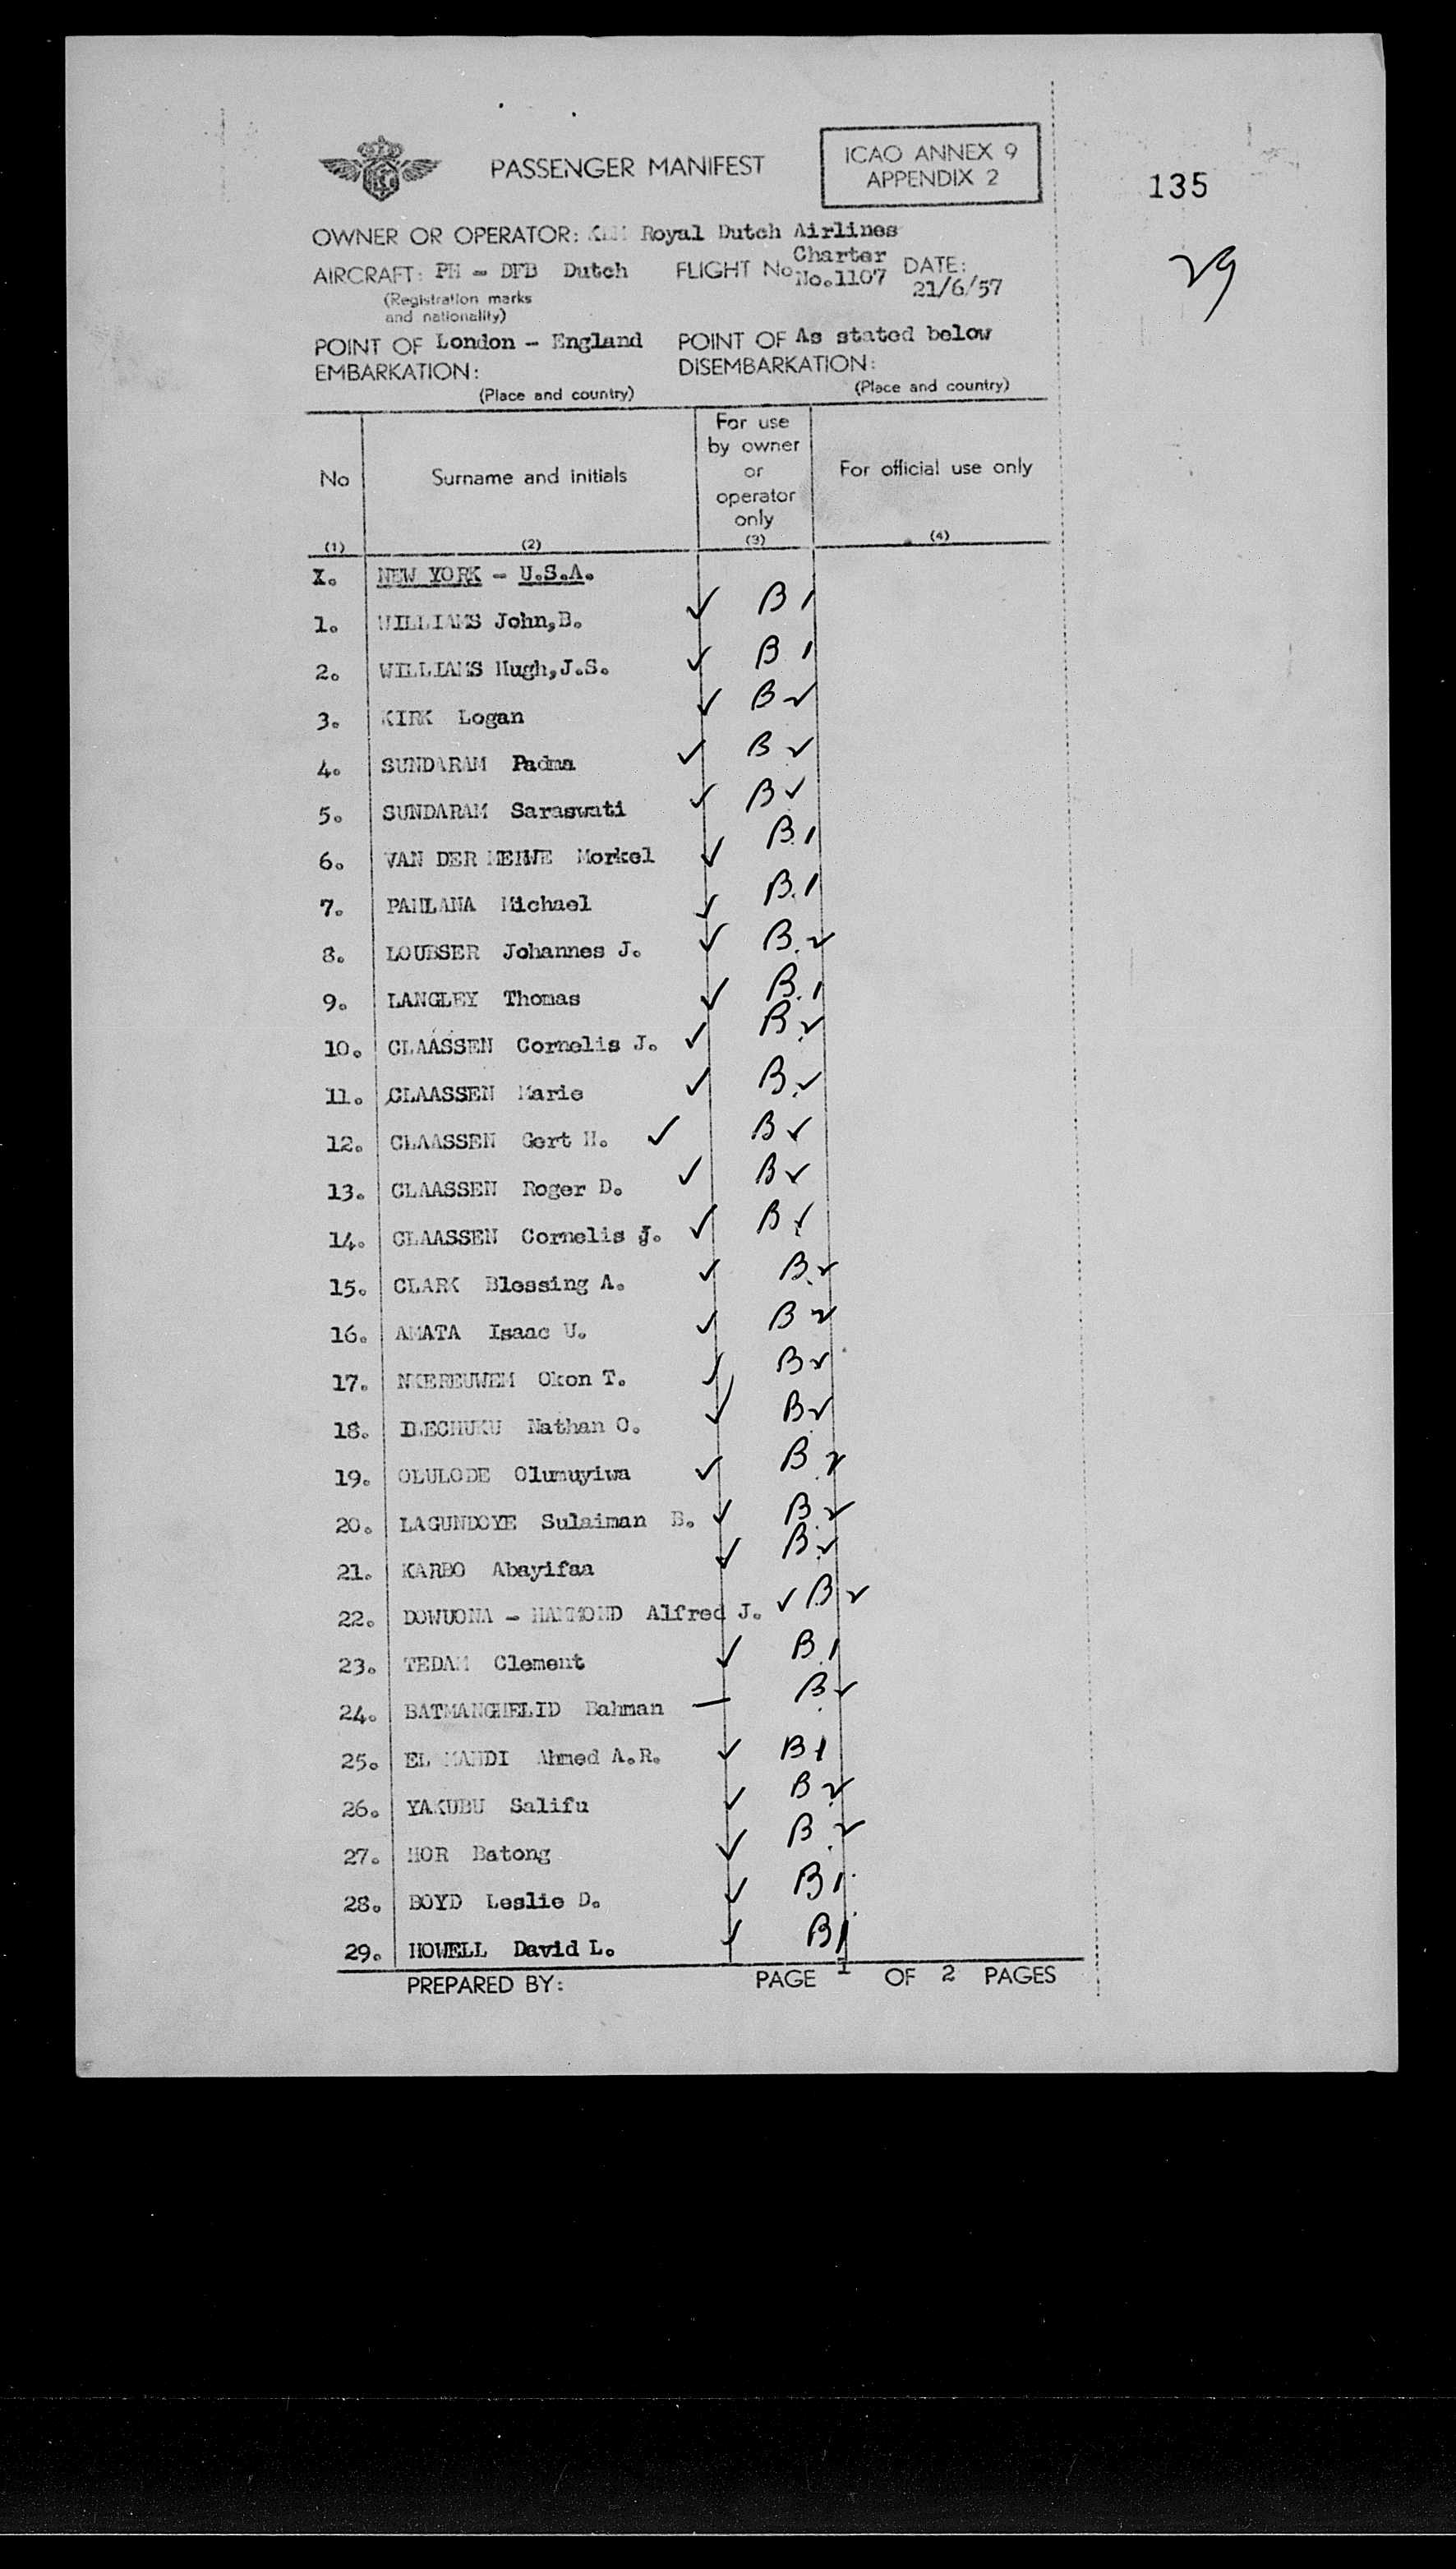 PASSENGER MANIFEST
ICAO ANNEX 9
APPENDIX 2
135
29
OWNER OR OPERATOR: KLM Royal Dutch Airlines
AIRCRAFT: PH - DFB Dutch FLIGHT No Charter No.1107 DATE: 21/6/57
(Registration marks
and nationality)
POINT OF London - England POINT OF As stated below
EMBARKATION: DISEMBARKATION:
(Place and country) (Place and country)
No Surname and initials For use by owner or operator only For official use only
(1) (2) (3) (4)
I. NEW YORK - U.S.A.
1. WILLIAMS John,B. ✓ B 1
2. WILLIAMS Hugh,J.S. ✓ B 1
3. KIRK Logan ✓ B 2
4. SUNDARAM Padma ✓ B 2
5. SUNDARAM Saraswati ✓ B 2
6. VAN DER MERWE Morkel ✓ B.1
7. PAHLANA Michael ✓ B.1
8. LOUBSER Johannes J. ✓ B.2
9. LANGLEY Thomas ✓ B.1
10. CLAASSEN Cornelis J. ✓ B.2
11. CLAASSEN Marie ✓ B.2
12. CLAASSEN Gert H. ✓ B 2
13. CLAASSEN Roger D. ✓ B 2
14. CLAASSEN Cornelis J. ✓ B 2
15. CLARK Blessing A. ✓ B.2
16. AMATA Isaac U. ✓ B 2
17. NKEREUWEM Okon T. ✓ B 2
18. ILECHUKU Nathan O. ✓ B 2
19. OLULODE Olumuyiwa ✓ B 2
20. LAGUNDOYE Sulaiman B. ✓ B 2
21. KARBO Abayifaa ✓ B.2
22. DOWUONA - HAMMOND Alfred J. ✓ B 2
23. TEDAM Clement ✓ B.1
24. BATMANGHELID Bahman — B 2
25. EL MAHDI Ahmed A.R. ✓ B 1
26. YAKUBU Salifu ✓ B 2
27. HOR Batong ✓ B 2
28. BOYD Leslie D. ✓ B 1
29. HOWELL David L. ✓ B 1
PREPARED BY: PAGE 1 OF 2 PAGES